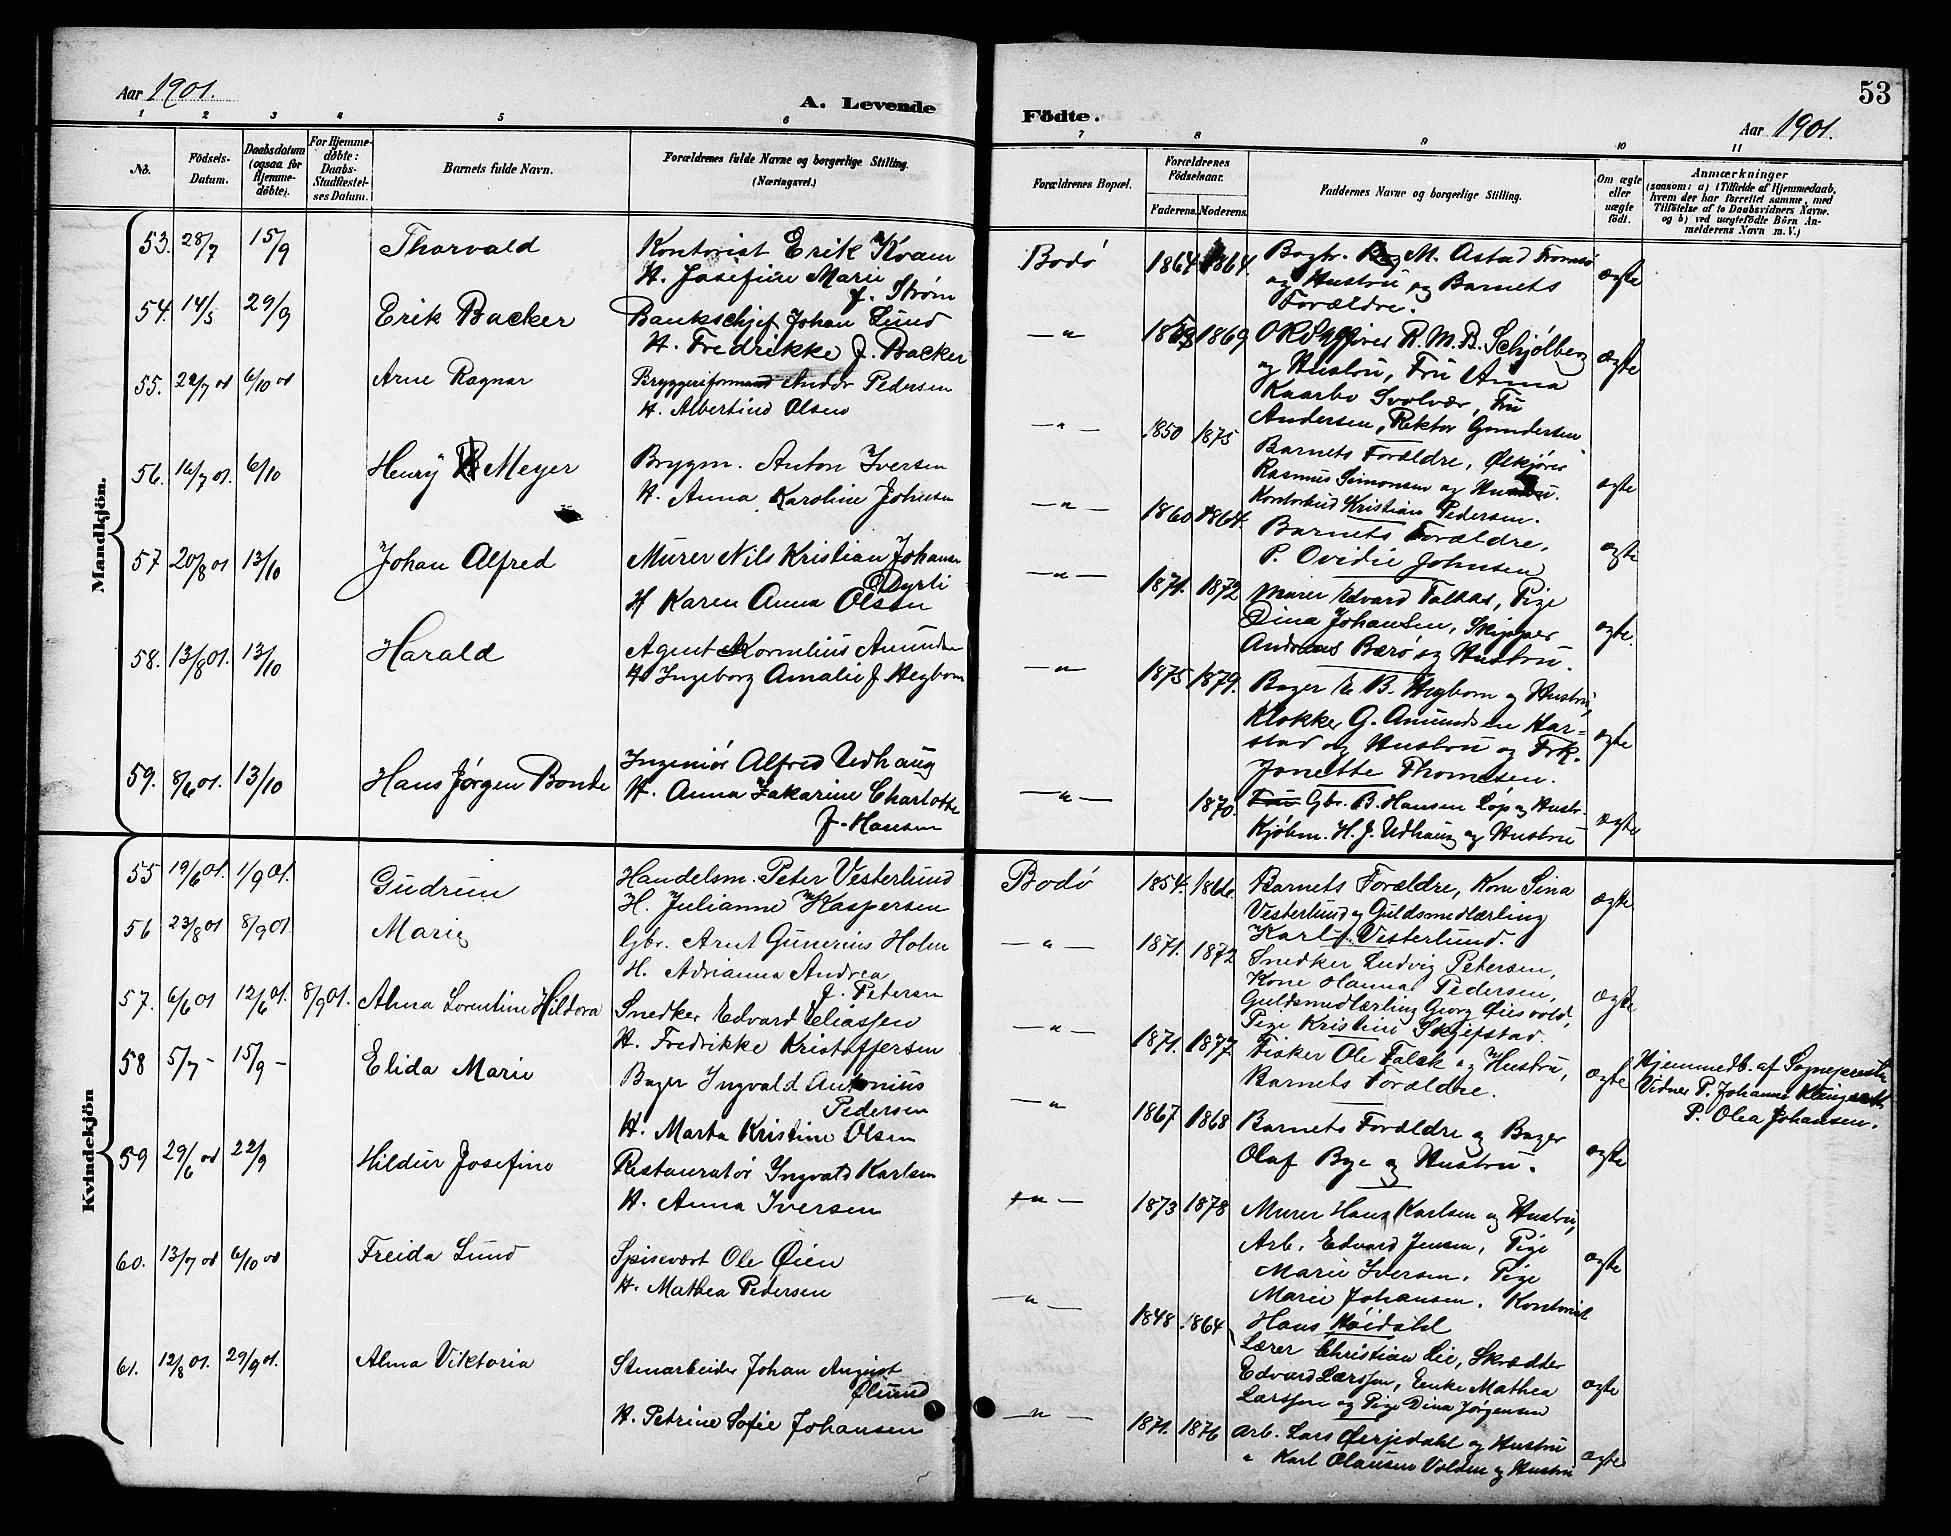 Aar 1901.
A. Levende
1 2 3 4 5 6
No.
Födsels-Datum.
Daabsdatum (ogsaa for Hjemme-döbte).
For Hjemme-döbte: Daabs-Stadfæstel-ses Datum.
Barnets fulde Navn.
Forældrenes fulde Navne og borgerlige Stilling. (Næringsvei.)
Mandkjön.
53. 28/7 15/9 Thorvald Kontorist Erik Kvam
H. Josefine Marie
f. Strøm
54. 14/5 29/9 Erik Backer Bankschef Johan Lund
H. Fredrikke f. Backer
55. 22/7 01 6/10 01 Arne Ragnar Bryggeriformand Andor Pedersen
H. Albertine Olsen
56. 16/7 01. 6/10 Henry Meyer Brygm. Anton Iversen
H. Anna Karoline Johnsen
57 20/8 01 13/10 Johan Alfred Murer Nils Kristian Johansen
Dyrli
H Karen Anna Olsen
58. 13/8 01. 13/10 Harald Agent Kornelius Amundsen
H. Ingeborg Amalie f Hegbom
59. 8/6 01. 13/10 Hans Jørgen Bonde Ingeniør Alfred Udhaug
H. Anna Zakarine Charlotte
f. Hansen
Kvindekjön
55 19/6 01. 1/9 01. Gudrun Handelsm. Peter Vesterlund
H. Julianne Kaspersen
56 23/8 01 8/9 01 Marie Gbr. Arnt Gunerius Holm
H. Adrianna Andrea
f. Petersen
57. 6/6 01 12/6 01. 8/9 01. Alma Lorentine Hildora Snedker Edvard Eliassen
H. Fredrikke Kristoffersen
58 5/7 - 15/9 - Elida Marie Bager Ingvald Antonius
Pedersen
H. Marta Kristine Olsen
59 29/6 01 22/9 Hildur Josefine Restauratør Ingvald Karlsen
H. Anna Iversen
60. 13/7 01 6/10 01 Freida Lund Spisevært Ole Øien
H. Mathea Pedersen
61. 12/8 01. 29/9 01. Alma Viktoria Stenarbeider Johan August
Ølund
H. Petrine Sofie Johansen
53
Födte.
Aar 1901.
7 8 9 10 11
Forældrenes Bopæl.
Forældrenes Födselsaar.
Faderens. Moderens.
Faddernes Navne og borgerlige Stilling.
Om ægte eller uægte födt.
Anmærkninger
(saasom: a) i Tilfælde af Hjemmedaab, hvem der har forrettet samme, med Tilföielse af to Daabsvidners Navne. og b) ved uægtefödte Börn An-melderens Navn m. V.)
Bodø 1864 1864. Bogtr. M. Astad Tromsø ægte
og Hustru og Barnets
Forældre.
—"— 1869 R. M. B. Schjølberg ægte
og Hustru, Fru Anna
Kaarbo Svolvær, Fru
Andersen, Rektor Gundersen
—"— 1850 1875 Barnets Forældre,
Rasmus Simonsen og Hustru. ægte
Kontorbud Kristian Pedersen.
—"— 1860 1864. Barnets Forældre,
P. Ovidie Johnsen ægte
—"— 1871. 1872 Murer Edvard Falkas, Pige
Dina Johansen, Skipper ægte.
Andreas Bærø og Hustru.
—"— 1875 1879. Bager E B. Hegbom og Hustru,
Klokker G. Amundsen Har= ægte
stad og Hustru og Frk.
Jonette Thomesen.
—"— 1870. Gbr. B. Hansen Løp og Hustr. ægte
Kjøbm. H. J. Udhaug og Hustru
Bodø 1854. 1866. Barnets Forældre, Kone Sina ægte
Vesterlund og Guldsmedlærling
Karl Vesterlund.
—"— 1871. 1872 Snedker Ludvig Petersen,
Kone Hanna Pedersen, ægte
Guldsmedlærling Georg Øiesvold,
Pige Kristine Skjefstad.
—"— 1871. 1877 Fisker Ole Falck og Hustru, ægte Hjemmedb. af Sognepresten
Barnets Forældre. Vidner P. Johanna
P. Olea Johansen.
—"— 1867 1868 Barnets Forældre og Bager ægte
Olaf Bye og Hustru.
—"— 1873 1878 Murer Hans Karlsen og Hustru,
Arb. Edvard Jensen, Pige ægte
Marie Iversen. Pige
Marie Johansen. Kontorist
Hans Høidahl
—"— 1848 1864 Lærer Christian Lie, Skrædder
Edvard Larssen, Enke Mathea ægte
Larssen og Pige Dina Jørgensen
—"— 1871. 1876 Arb. Lars Øerjedahl og Hustru ægte
" Karl Olausen Volden og Hustru